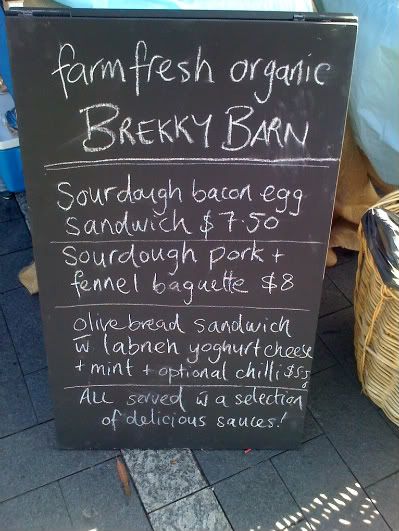 farmfresh organic
BREKKY BARN
Sourdough bacon egg
sandwich $7.50
Sourdough pork +
fennel baguette $8
olive bread sandwich
w labneh yoghurt cheese
+ mint + optional chilli
ALL served w a selection
of delicious sauces!